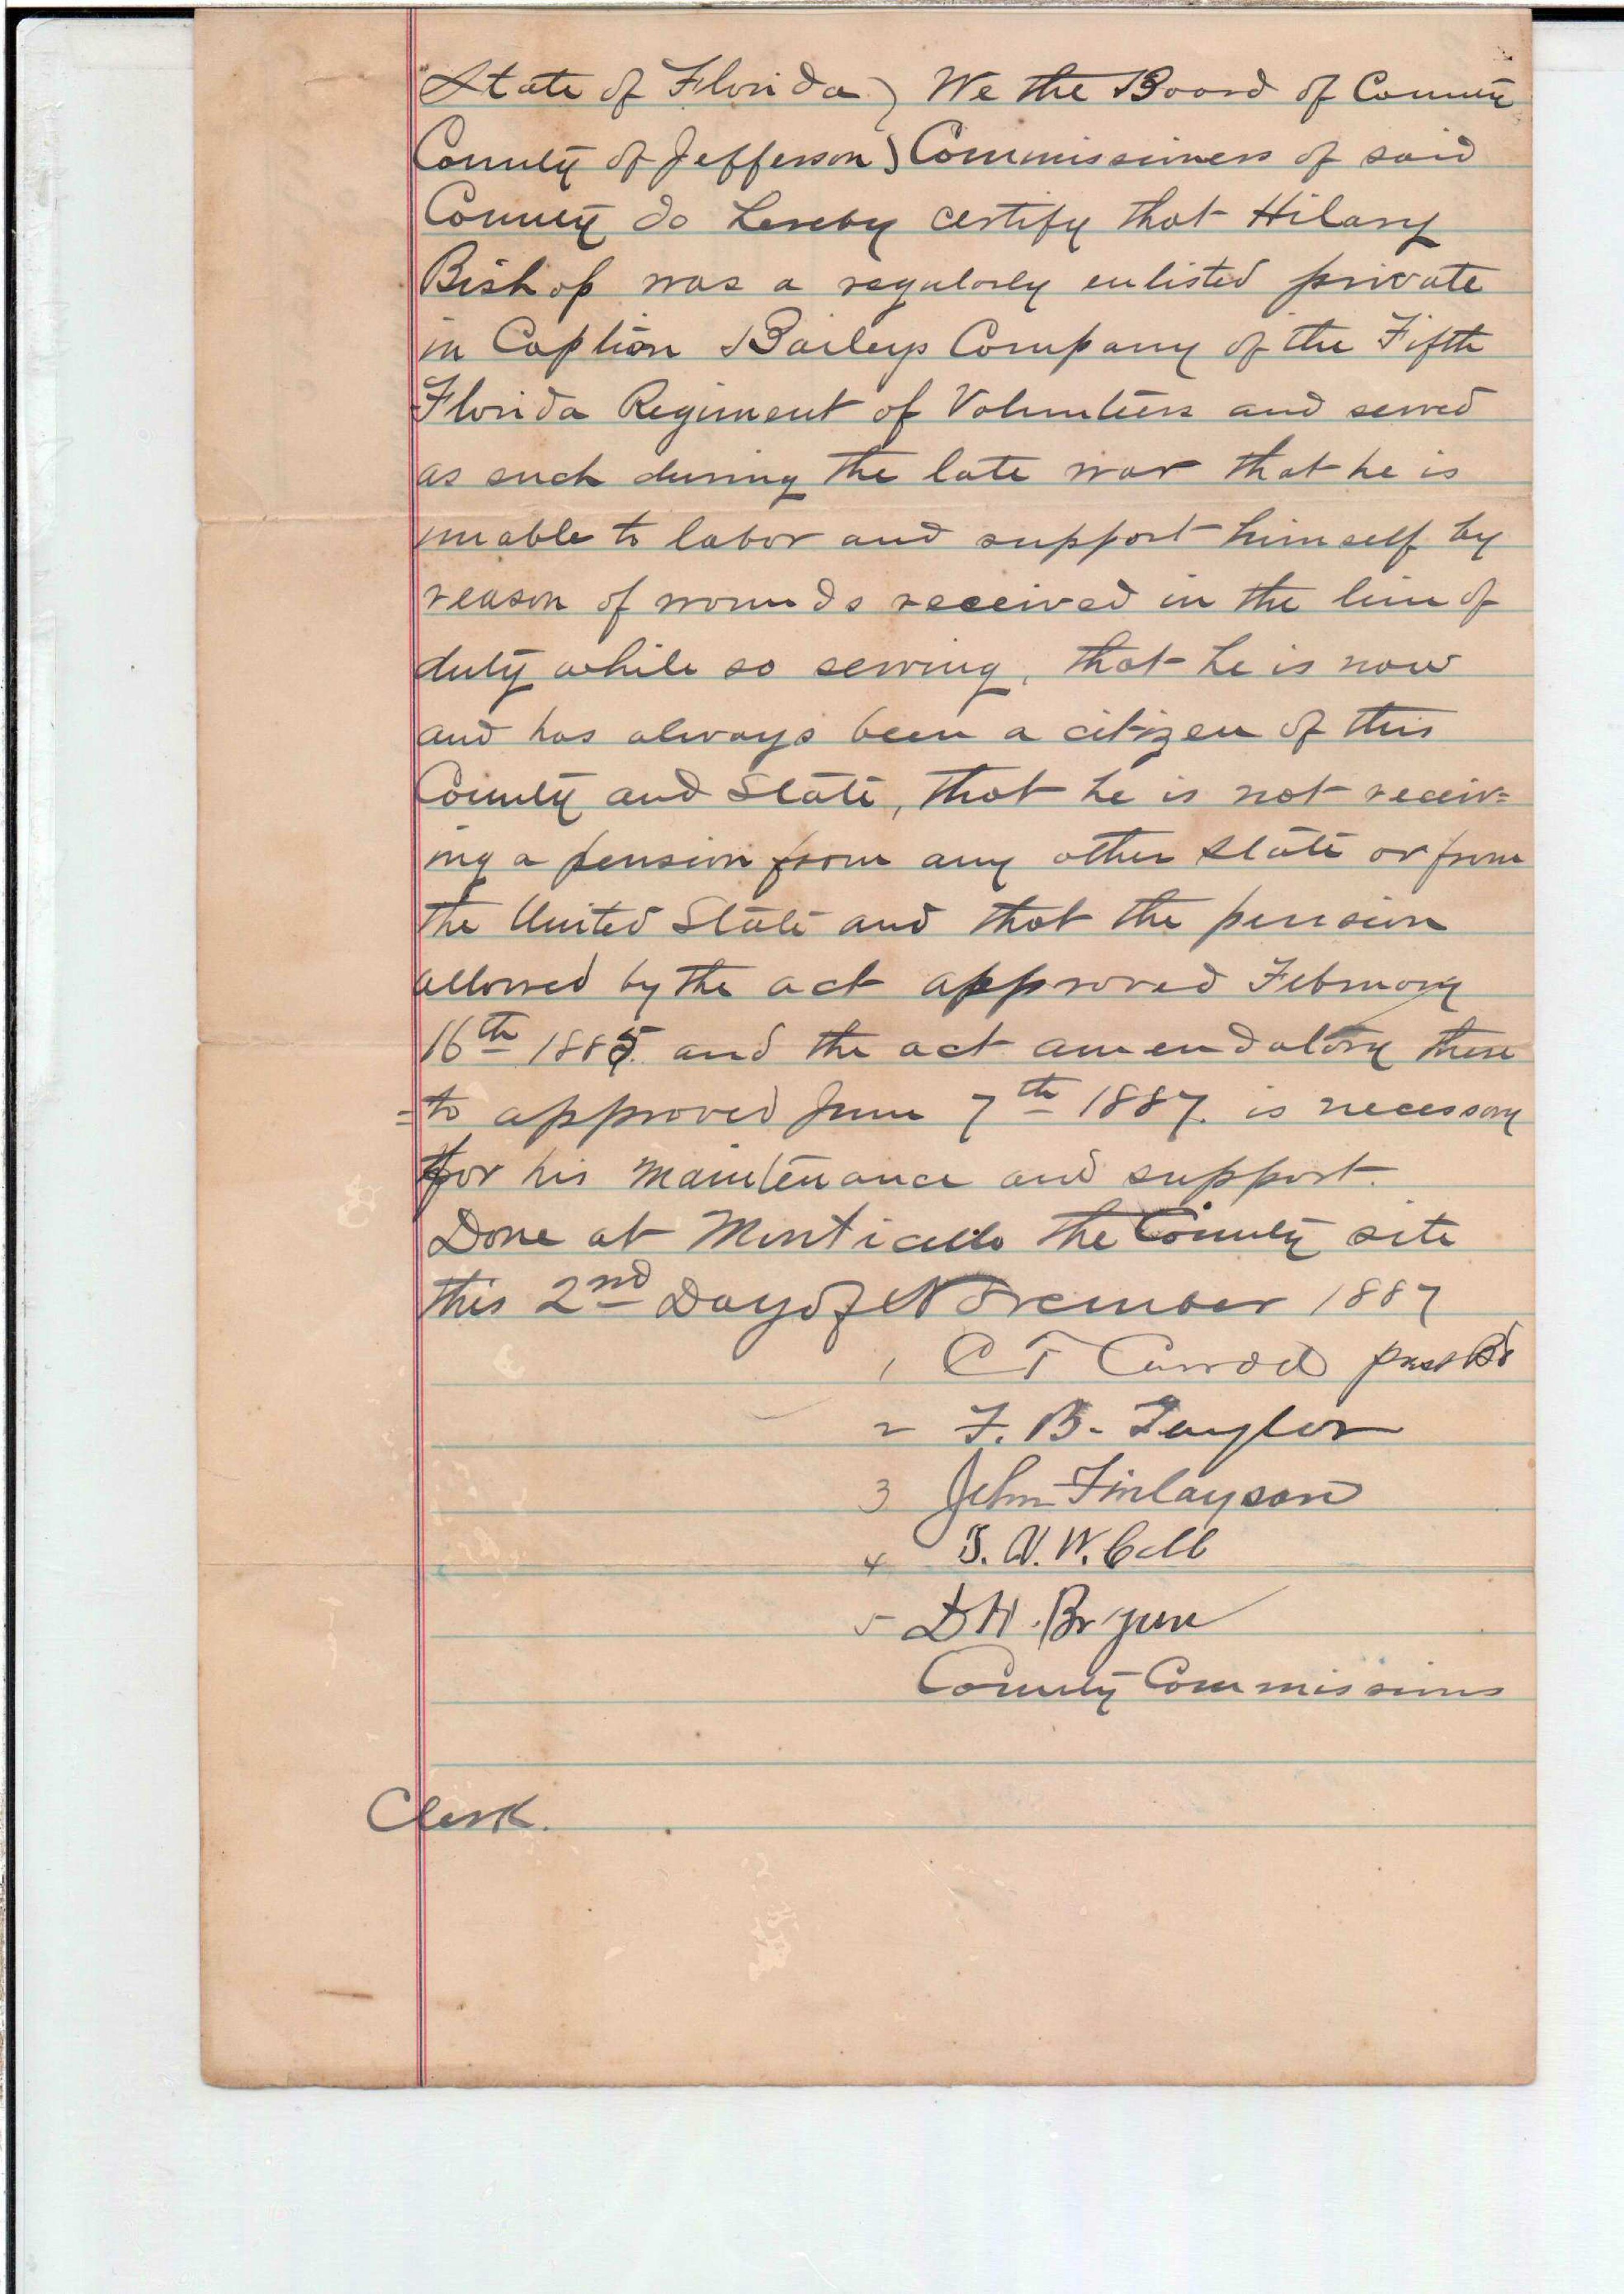 State of Florida ) We the Board of County
County of Jefferson ) Commissioners of said
County do hereby certify that Hilary
Bishop was a regularly enlisted private
in Caption Baileys Company of the Fifth
Florida Regiment of Volunteers and served
as such during the late war that he is
unable to labor and support himself by
reason of wounds received in the line of
duty while so serving, that he is now
and has always been a citizen of this
County and State, that he is not receiv=
ing a pension from any other state or from
the United State and that the pension
allowed by the act approved February
16th 1885. and the act amendatory there
=to approved June 7th 1887. is necessary
for his maintenance and support.
Done at Monticello the County site
this 2nd Day of November 1887
1 C T Carroll prest Bd
2 F. B. Taylor
3 John Finlayson
4 W.
5 D H. Bryan
County Commissions
Clerk.